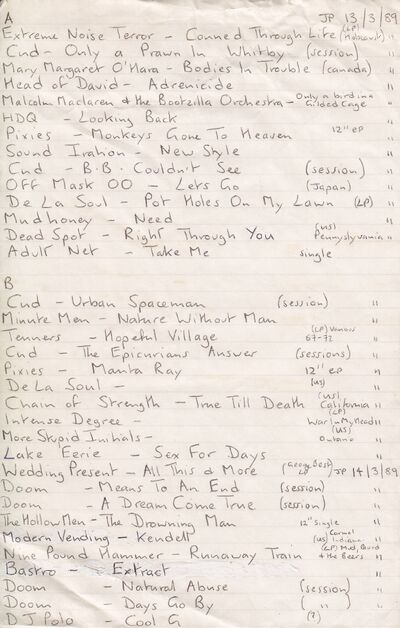 A JP 13/3/89
Extreme Noise Terror - Conned Through Life (LP) Holocaust "
Cud - Only a Prawn In Whitby (session) "
Mary Margaret O'Hara - Bodies In Trouble (canada) "
Head of David - Adrenicide "
Malcolm Maclaren & the Bootzilla Orchestra - Only a bird in a Gilded Cage "
HDQ - Looking Back "
Pixies - Monkeys Gone To Heaven 12" ep "
Sound Iration - New Style "
Cud - B.B. Couldn't See (session) "
OFF Mask OO - Lets Go (Japan) "
De La Soul - Pot Holes On My Lawn (LP) "
Mudhoney - Need "
Dead Spot - Right Through You (US) Pennyslyvania "
Adult Net - Take Me single "
B
Cud - Urban Spaceman (session) "
Minute Men - Nature Without Man "
Tenners - Hopeful Village (LP) Various 67-72 "
Cud - The Epicurians Answer (sessions) "
Pixies - Manta Ray 12" ep "
De La Soul - (US) "
Chain of Strength - True Till Death (US) California "
Intense Degree - (LP) War In My Head "
More Stupid Initials - (US) "
Lake Eerie - Sex For Days "
Wedding Present - All This & More (George Best) LP JP 14/3/89
Doom - Means To An End (session) "
Doom - A Dream Come True (session) "
The Hollow Men - The Drowning Man 12" Single "
Modern Vending - Kendell (US) Indiana "
Nine Pound Hammer - Runaway Train (LP) Mud, Blood & the Beers "
Bastro - Extract "
Doom - Natural Abuse (session) "
Doom - Days Go By ( " ) "
DJ Polo - Cool G (?) "